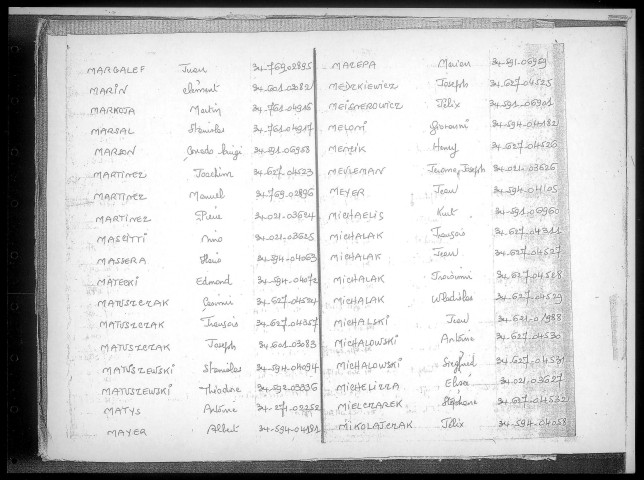 MARGALEF Juan 34-769.02895
MARIN Clément 34-601.03082
MARKOJA Martin 34-761.04916
MARSAL Stanislas 34-761.04917
MARSON Corrado Luigi 34-591.06958
MARTINEZ Joachim 34-627.04523
MARTINEZ Manuel 34-769.02896
MARTINEZ Pierre 34-021.03624
MASCITTI Nino 34-021.03625
MASSERA 34-594.04063
MATECKI Edmond 34-594.04072
MATUSZCZAK Casimir 34-627.04524
MATUSZCZAK François 34-627.04357
MATUSZCZAK Joseph 34-601.03083
MATUSZEWSKI Stanislas 34-594.04094
MATUSZEWSKI Théodore 34-592.03336
MATYS Antoine 34-271.02252
MAYER Albert 34-594.04191
MAZEPA Marian 34-591.06959
MEDZKIEWICZ Joseph 34-627.04525
MEISNEROWICZ Félix 34-591.06901
MELONI Giovanni 34-594.04182
MENCIK Henry 34-627.04526
MEULEMAN Jerome, Joseph 34-021.03626
MEYER Jean 34-594.04105
MICHAELIS Kurt 34-591.06960
MICHALAK François 34-627.04311
MICHALAK Jean 34-627.04527
MICHALAK 34-627.04528
MICHALAK Wladislas 34-627.04529
MICHALSKI Jean 34-621.01988
MICHALOWSKI Antoine 34-627.04530
MICHALOWSKI Siegfried 34-627.04531
MICHELIZZA Elisée 34-021.03627
MIELCZAREK Stéphane 34-627.04532
MIKOLAJCZAK Félix 34-594.04058